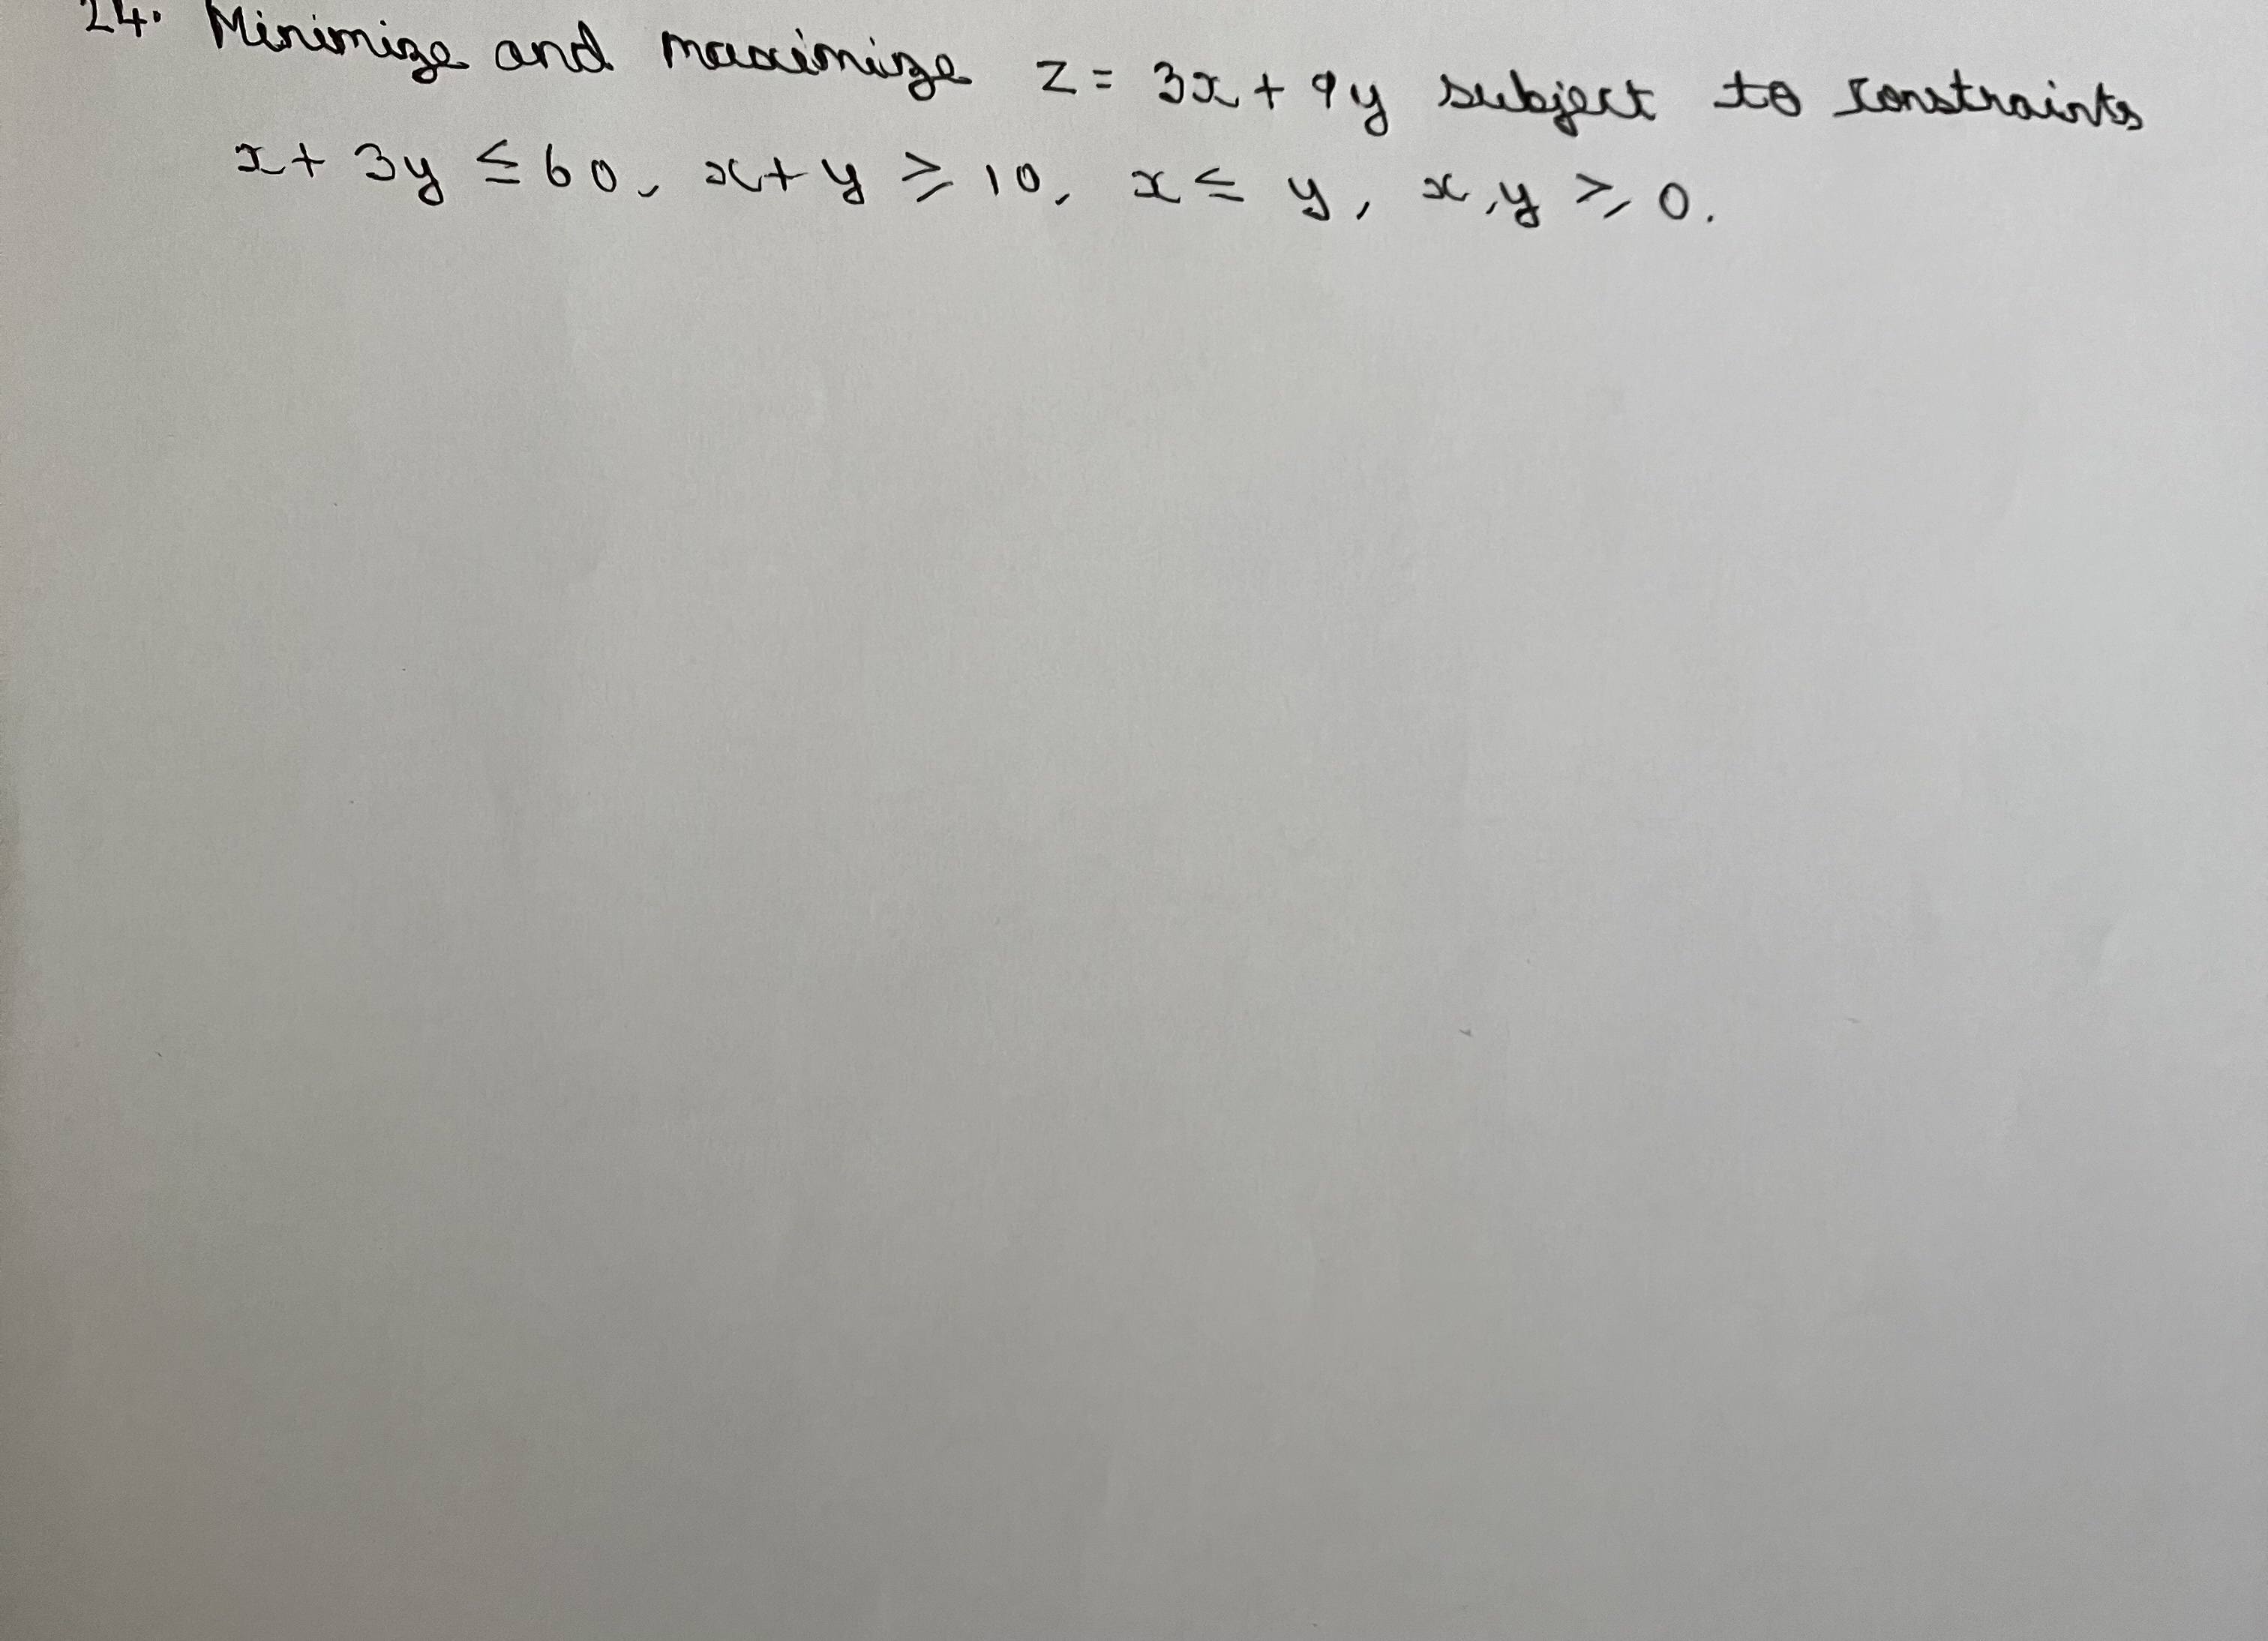 24. Minimize and maximize z = 3x + 9y subject to constraints
x + 3y ≤ 60, x + y ≥ 10, x ≤ y, x, y ≥ 0.